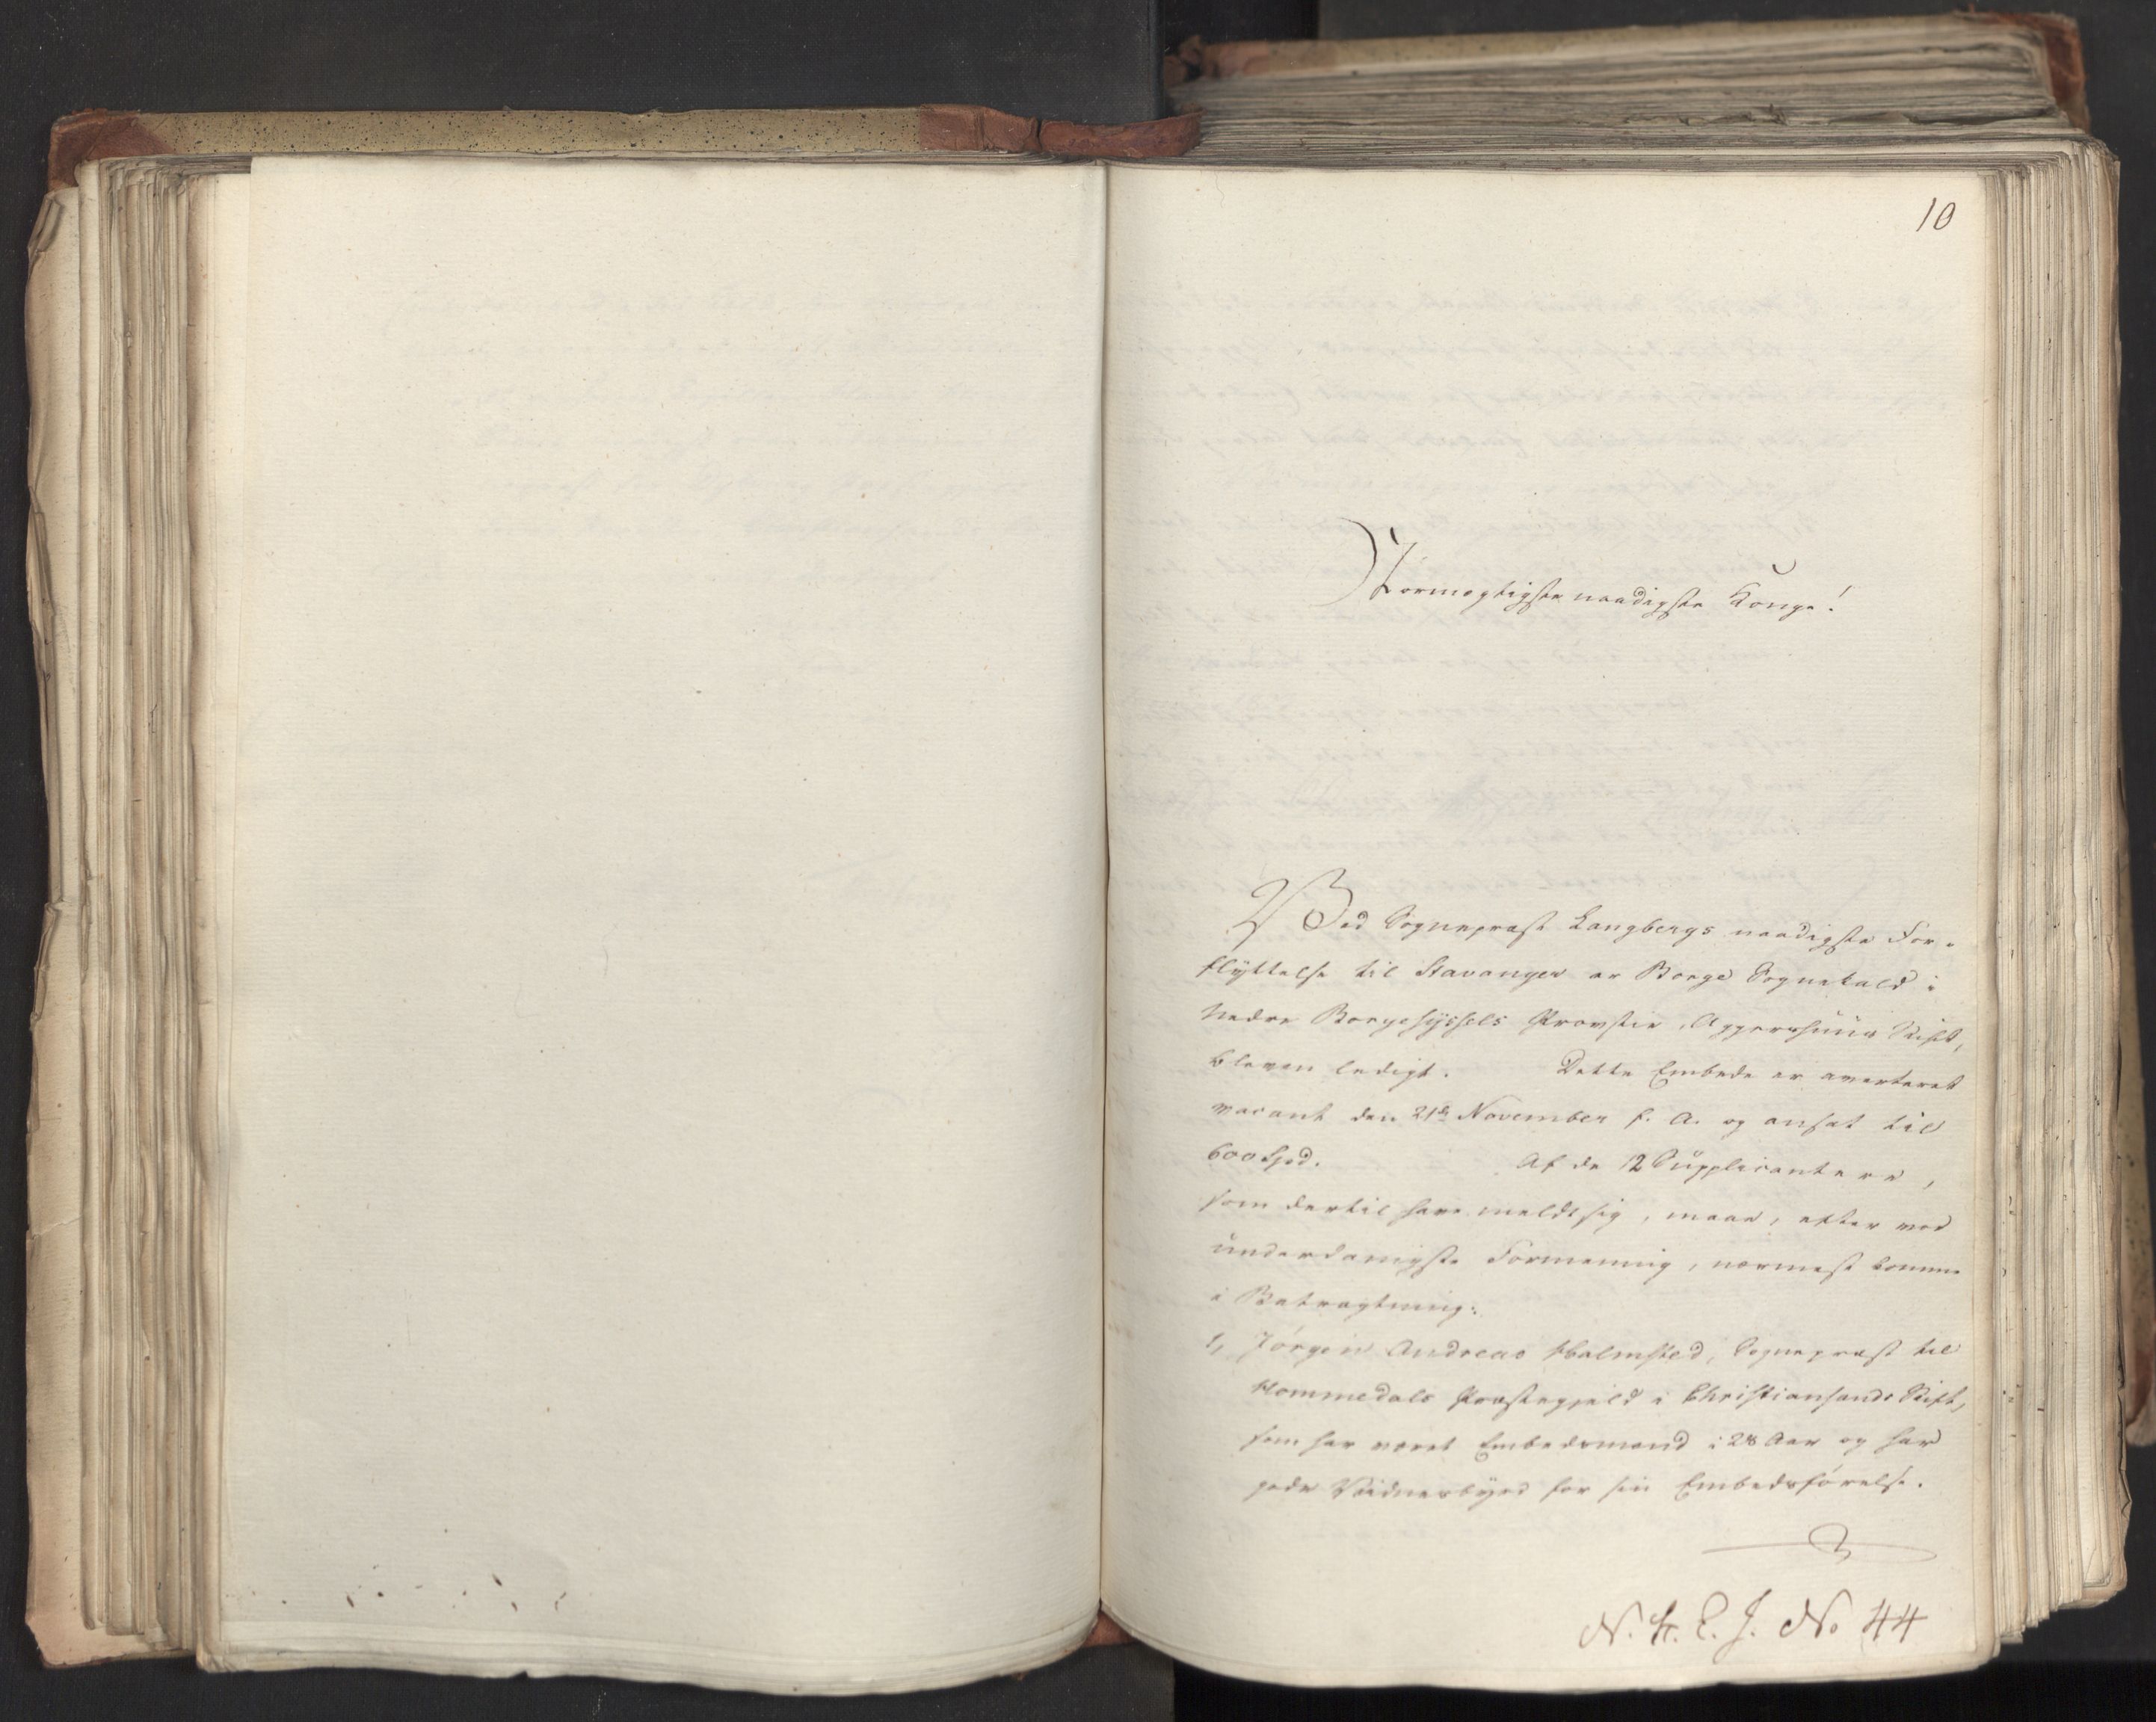 10
Stormægtigste naadigste Konge!
Ved Sognepræst Langbergs naadigste For-
flÿttelse til Stavanger er Borge Sognekald i
Nedre Borgesÿssels Provstie, Aggershuus Stift,
bleven ledigt. Dette Embede er averteret
vacant den 21de November f. A. og ansat til
600 Spd. Af de 12 Supplicantere,
som dertil have meldt sig, maae, efter vor
underdanigste Formening, nærmest komme
i Betragtning:
1, Jørgen Andreas Holmsted, Sognepræst til
Hommedals Præstegjeld i Christiansands Stift,
som har været Embedsmand i 28 Aar og har
gode Vidnesbÿrd for sin Embedsførelse.
N. St. E. J. No 44